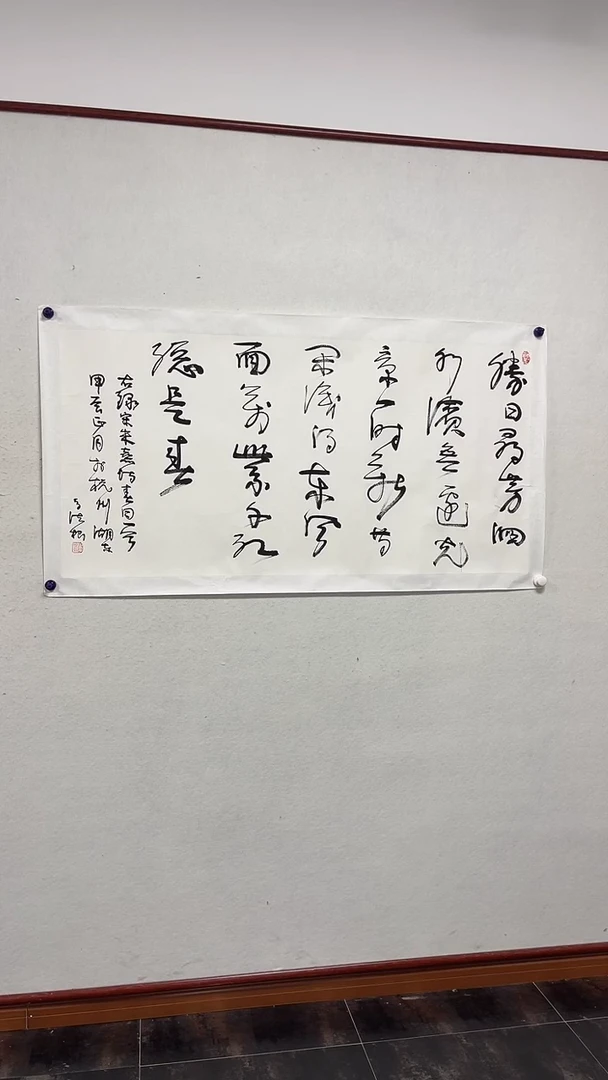 勝日尋芳泗
水濱無邊光
景一時新等
閒識得東風
面萬紫千紅
總是春
右録宋朱熹詩春日一首
甲辰正月於杭州湖